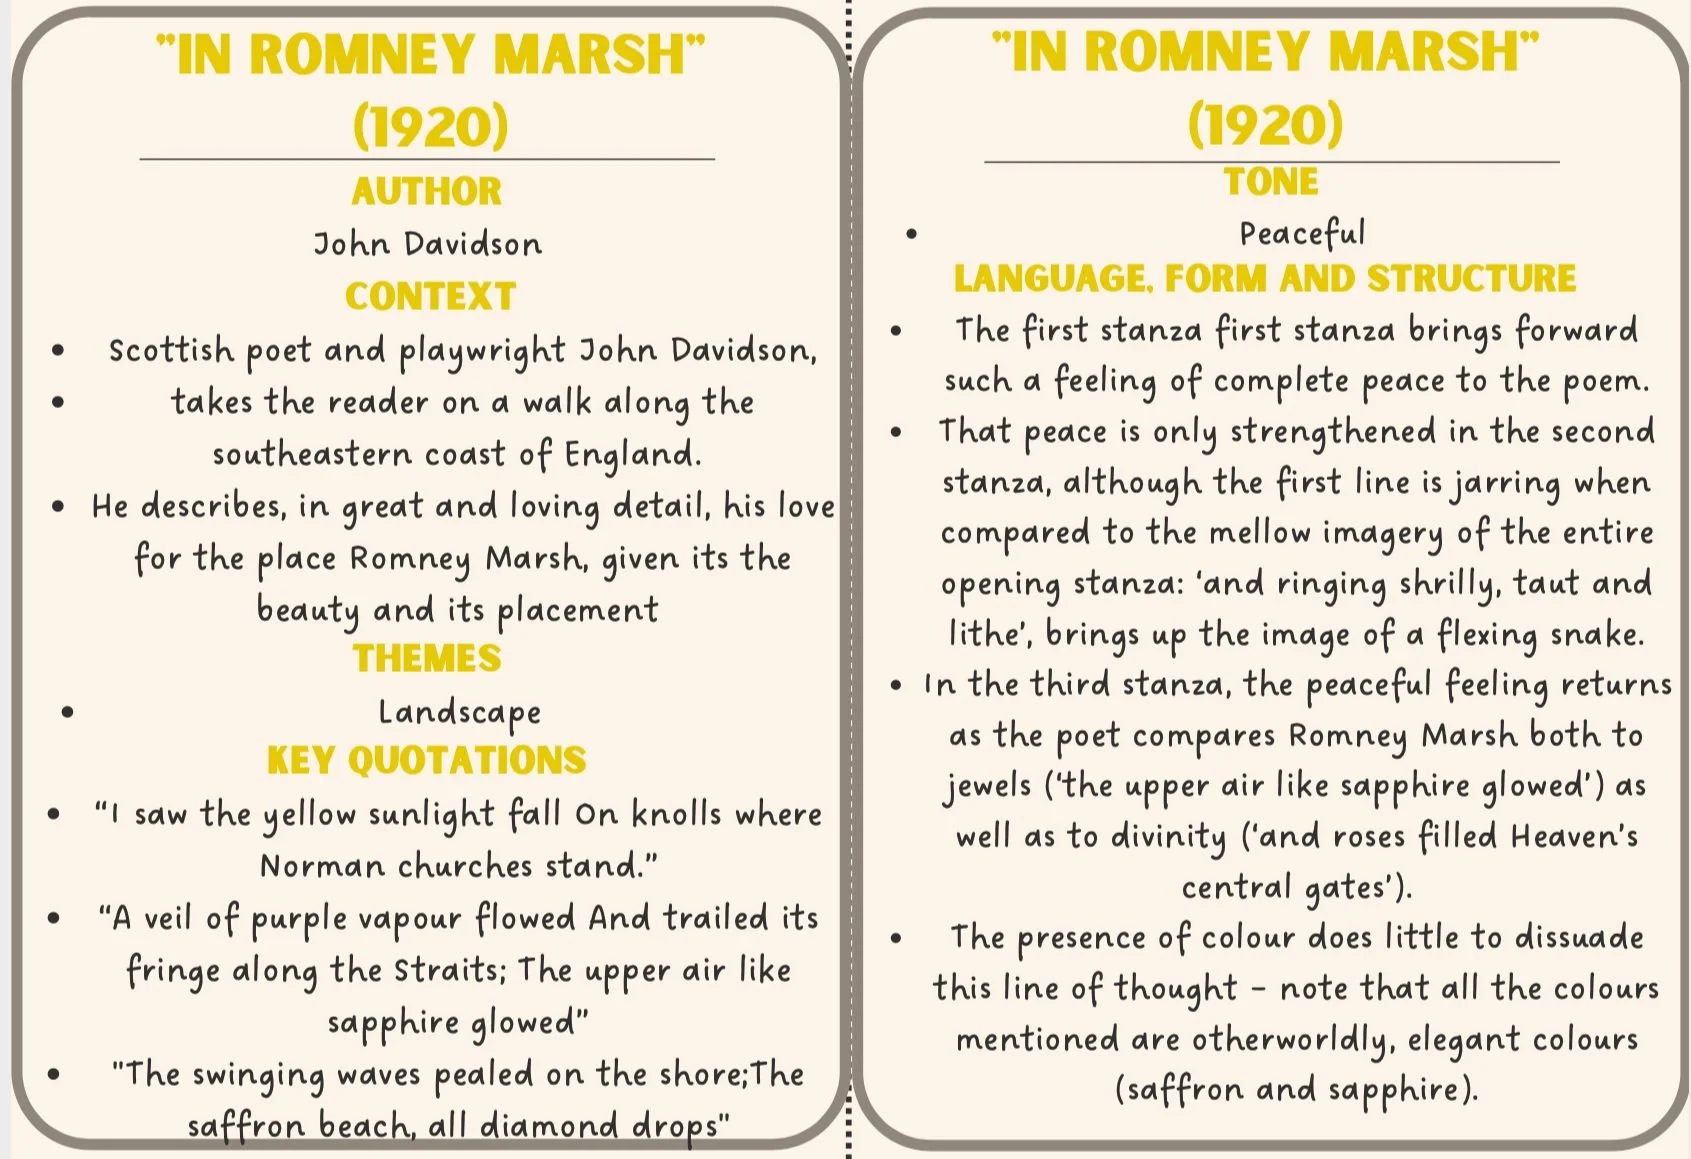 "IN ROMNEY MARSH"
(1920)
AUTHOR
John Davidson
CONTEXT
• Scottish poet and playwright John Davidson,
• takes the reader on a walk along the
southeastern coast of England.
• He describes, in great and loving detail, his love
for the place Romney Marsh, given its the
beauty and its placement
THEMES
• Landscape
KEY QUOTATIONS
• "I saw the yellow sunlight fall On knolls where
Norman churches stand."
• "A veil of purple vapour flowed And trailed its
fringe along the Straits; The upper air like
sapphire glowed"
• "The swinging waves pealed on the shore;The
saffron beach, all diamond drops"
"IN ROMNEY MARSH"
(1920)
TONE
• Peaceful
LANGUAGE, FORM AND STRUCTURE
• The first stanza first stanza brings forward
such a feeling of complete peace to the poem.
• That peace is only strengthened in the second
stanza, although the first line is jarring when
compared to the mellow imagery of the entire
opening stanza: 'and ringing shrilly, taut and
lithe', brings up the image of a flexing snake.
• In the third stanza, the peaceful feeling returns
as the poet compares Romney Marsh both to
jewels ('the upper air like sapphire glowed') as
well as to divinity ('and roses filled Heaven's
central gates').
• The presence of colour does little to dissuade
this line of thought – note that all the colours
mentioned are otherworldly, elegant colours
(saffron and sapphire).